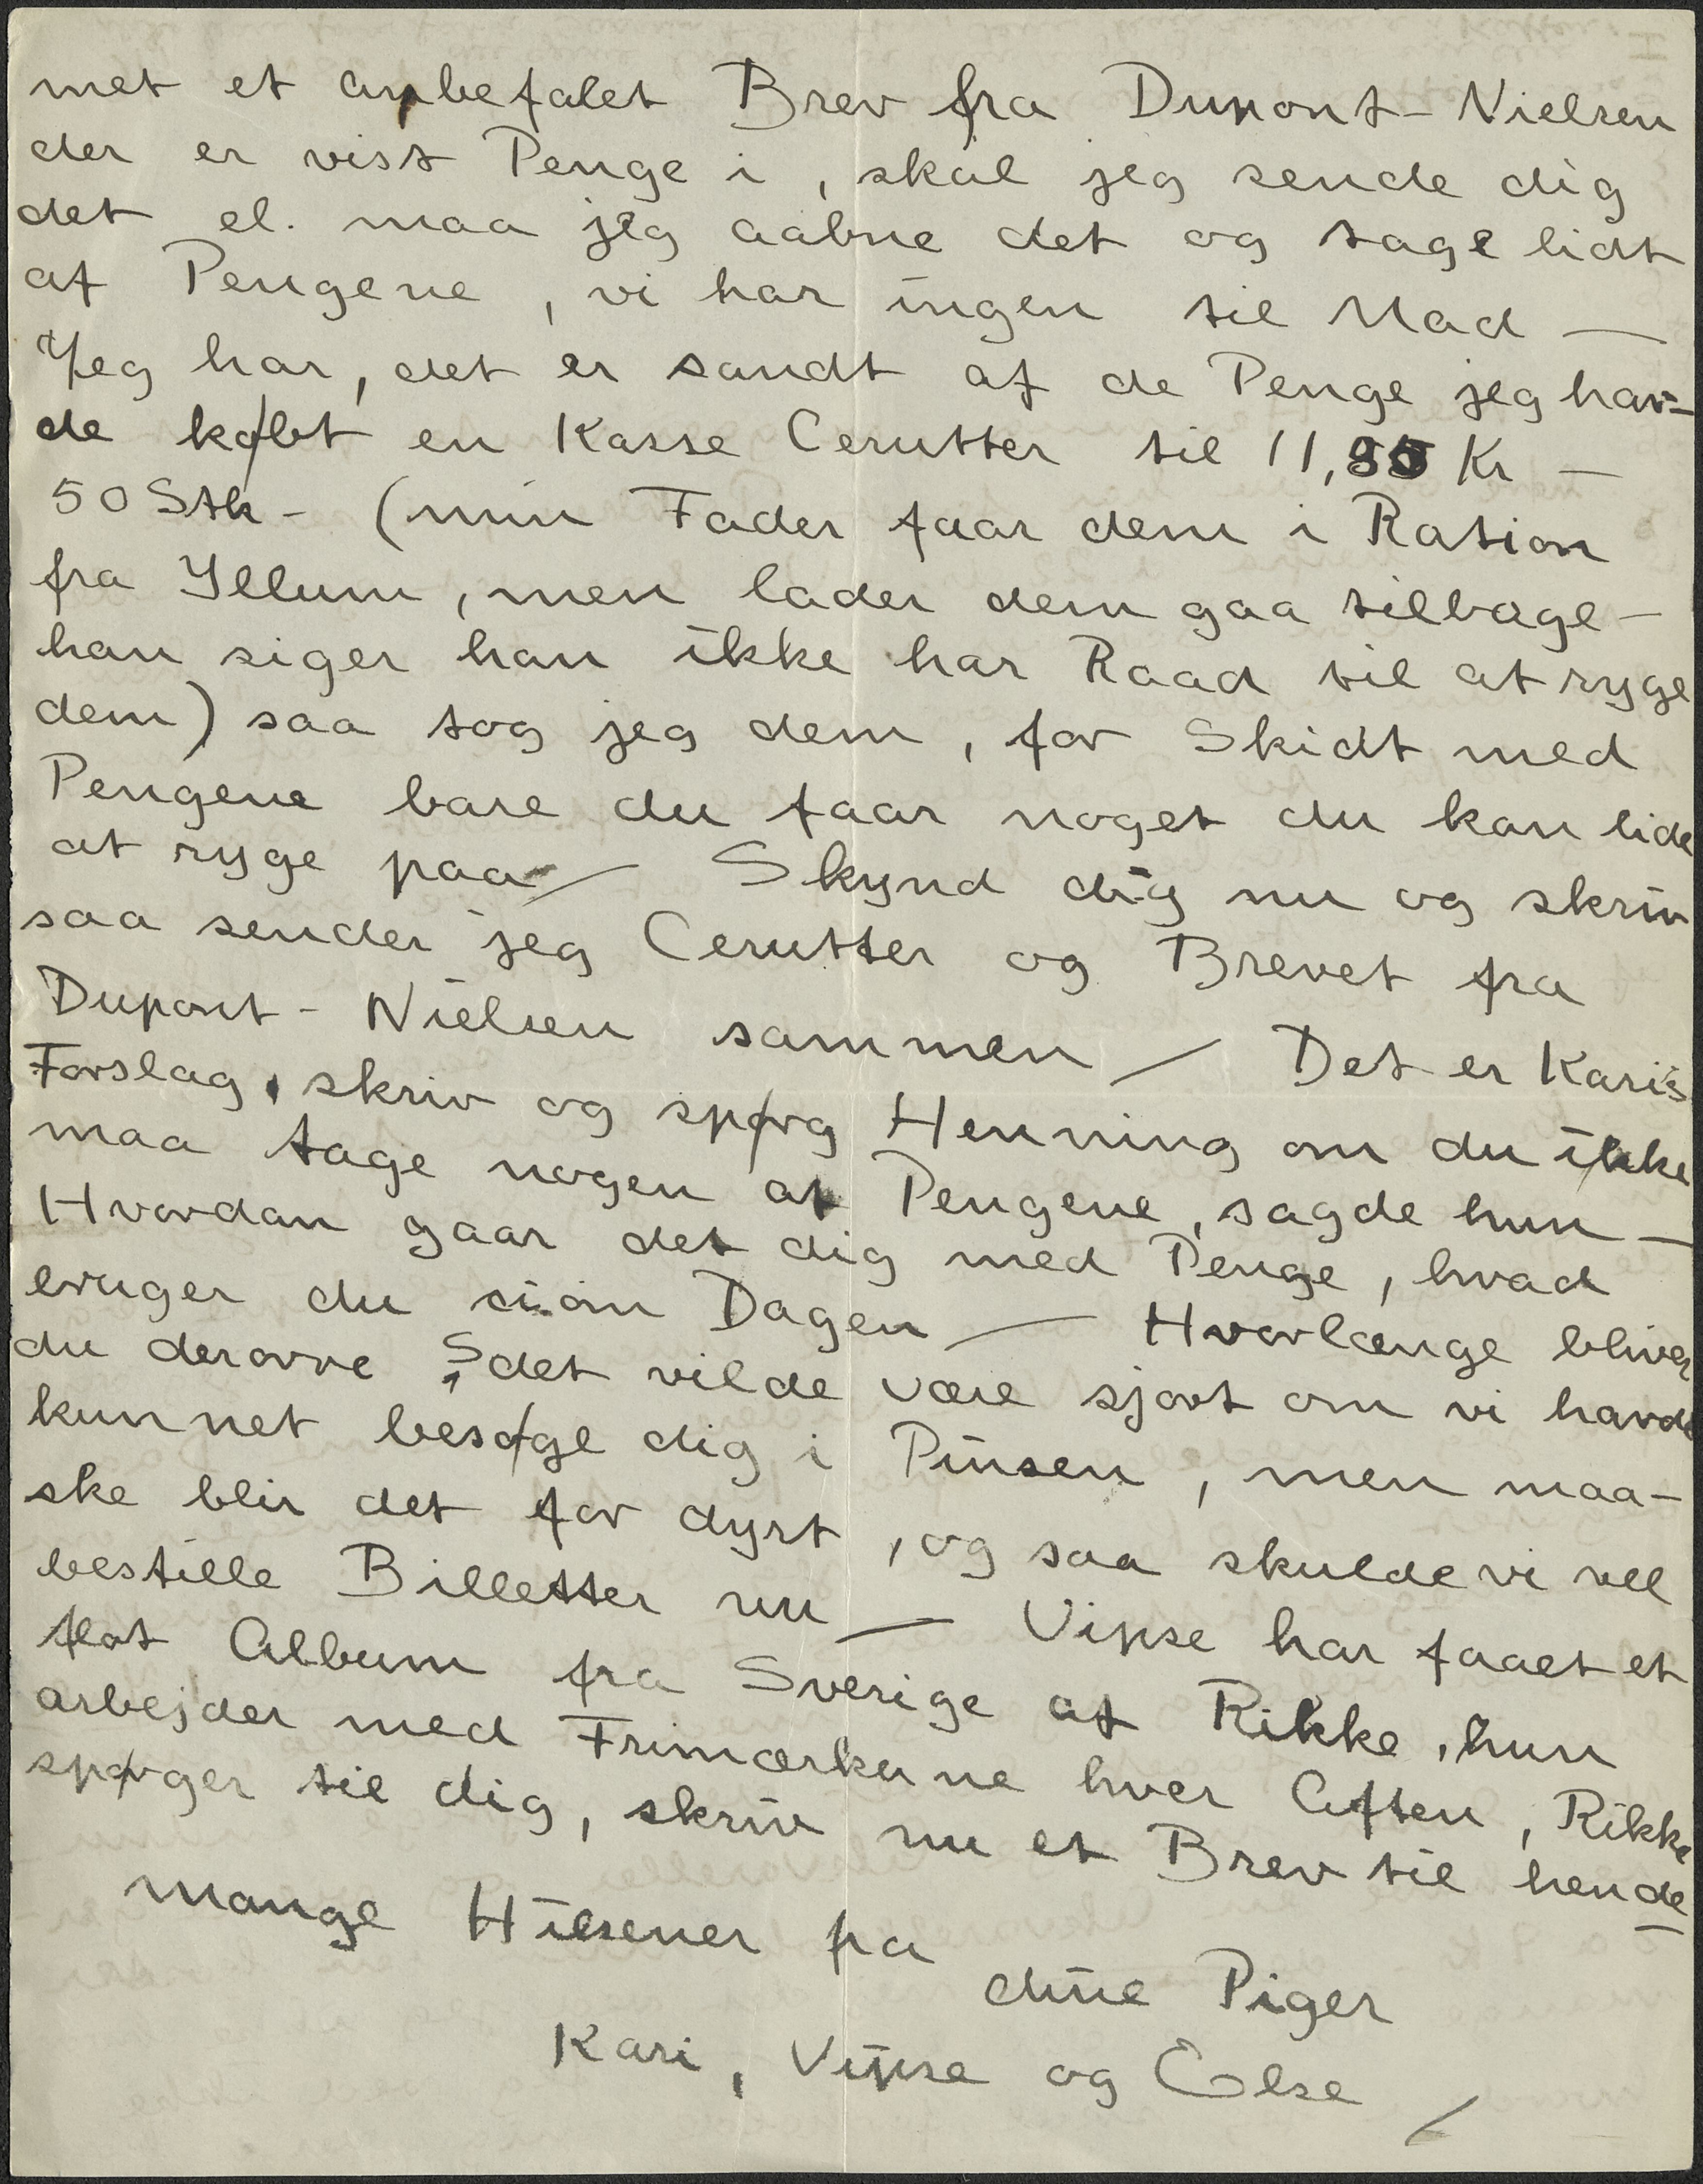 met et anbefalet Brev fra Dupont-Nielsen
der er vist Penge i, skal jeg sende dig
det el. maa jeg aabne det og tage lidt
af Pengene, vi har ingen til Mad —
Jeg har, det er sandt af de Penge jeg hav-
de købt en Kasse Cerutter til 11,85 Kr —
50 Stk - (min Fader faar dem i Ration
fra Illum, men lader dem gaa tilbage -
han siger han ikke har Raad til at ryge
dem) saa tog jeg dem, for Skidt med
Pengene bare du faar noget du kan lide
at ryge paa — Skynd dig nu og skriv
saa sender jeg Cerutter og Brevet fra
Dupont-Nielsen sammen — Det er Kari's
Forslag, skriv og spørg Henning om du ikke
maa tage nogen af Pengene, sagde hun —
Hvordan gaar det dig med Penge, hvad
bruger du om Dagen — Hvorlænge bliver
du derovre ? det vilde være sjovt om vi havde
kunnet besøge dig i Pinsen, men maa-
ske blir det for dyrt, og saa skulde vi vel
bestille Billetter nu — Vipse har faaet et
flot Album fra Sverige af Rikke, hun
arbejder med Frimærkerne hver Aften, Rikke
spørger til dig, skriv nu et Brev til hende
Mange Hilsener fra
dine Piger
Kari, Vipse og Else